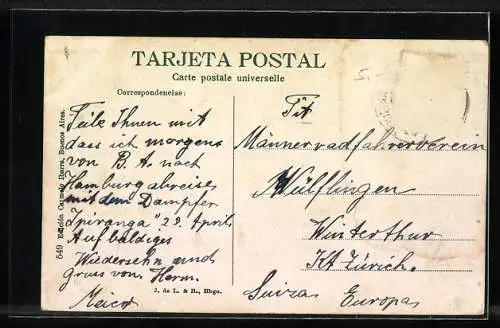 TARJETA POSTAL
Carte postale universelle
Correspondencias:
Teile Ihnen mit
dass ich morgens
von B. A. nach
Hamburg abreise
mit dem Dampfer
"Ipiranga" 29. April
Auf baldiges
Wiedersehn und
Gruss von Herm.
Meier
549 Edición Carmelo Ibarra, Buenos Aires.
J. de L. & H., Hbgo.
Tit
Männerradfahrerverein
Wülflingen
Winterthur
Kt Zürich.
Suiza Europa